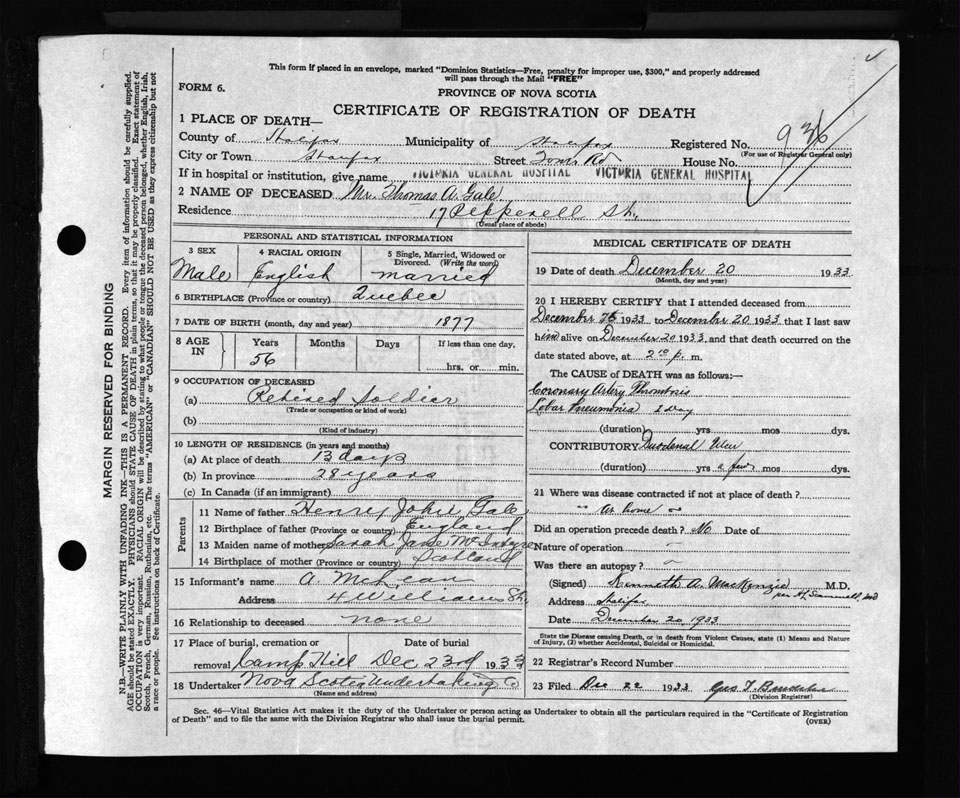 This form if placed in an envelope, marked "Dominion Statistics—Free, penalty for improper use, $300," and properly addressed
will pass through the Mail "FREE"
FORM 6.
PROVINCE OF NOVA SCOTIA
CERTIFICATE OF REGISTRATION OF DEATH
936
1 PLACE OF DEATH—
County of Halifax Municipality of Halifax Registered No.
(For use of Registrar General only)
City or Town Halifax Street Tom. Rd House No.
If in hospital or institution, give name VICTORIA GENERAL HOSPITAL VICTORIA GENERAL HOSPITAL
2 NAME OF DECEASED Mr. Thomas A. Gale
Residence 17 Pepperell St.
(Usual place of abode)
PERSONAL AND STATISTICAL INFORMATION
3 SEX 4 RACIAL ORIGIN 5 Single, Married, Widowed or
Divorced. (Write the word)
Male English married
6 BIRTHPLACE (Province or country) Quebec
7 DATE OF BIRTH (month, day and year) 1877
8 AGE IN Years Months Days If less than one day,
56 hrs. or min.
9 OCCUPATION OF DECEASED
(a) Retired Soldier
(Trade or occupation or kind of work)
(b)
(Kind of industry)
10 LENGTH OF RESIDENCE (in years and months)
(a) At place of death 13 days
(b) In province 28 years
(c) In Canada (if an immigrant)
Parents
11 Name of father Henry John Gale
12 Birthplace of father (Province or country) England
13 Maiden name of mother Sarah Jane McIntyre
14 Birthplace of mother (Province or country) Scotland
15 Informant's name A McLean
Address 4 Williams St.
16 Relationship to deceased none
17 Place of burial, cremation or Date of burial
removal Camp Hill Dec 23rd 1933
18 Undertaker Nova Scotia Undertaking Co
(Name and address)
MEDICAL CERTIFICATE OF DEATH
19 Date of death December 20 1933
(Month, day and year)
20 I HEREBY CERTIFY that I attended deceased from
December 1933 to December 20 1933 that I last saw
him alive on December 20 1933, and that death occurred on the
date stated above, at 2 10 p. m.
The CAUSE of DEATH was as follows:—
Coronary Artery Thrombosis
Lobar Pneumonia 1 day
(duration) yrs mos dys.
CONTRIBUTORY Duodenal Ulcer
(duration) yrs a few mos dys.
21 Where was disease contracted if not at place of death?
" at home "
Did an operation precede death? No Date of
Nature of operation –
Was there an autopsy? –
(Signed) Kenneth A. MacKenzie M.D.
Address Halifax
Date December 20 1933
State the Disease causing Death, or in death from Violent Causes, state (1) Means and Nature
of Injury, (2) whether Accidental, Suicidal or Homicidal.
22 Registrar's Record Number
23 Filed Dec 22 1933
(Division Registrar)
Sec. 46—Vital Statistics Act makes it the duty of the Undertaker or person acting as Undertaker to obtain all the particulars required in the "Certificate of Registration
of Death" and to file the same with the Division Registrar who shall issue the burial permit.
(OVER)
MARGIN RESERVED FOR BINDING
N.B.—WRITE PLAINLY WITH UNFADING INK—THIS IS A PERMANENT RECORD. Every item of information should be carefully supplied.
AGE should be stated EXACTLY. PHYSICIANS should STATE CAUSE OF DEATH in plain terms, so that it may be properly classified. Exact statement of
OCCUPATION is very important. RACIAL ORIGIN will be described by stating to what people or tongue the deceased person belonged, whether English, Irish,
Scotch, French, German, Russian, Ruthenian, etc. The terms "AMERICAN" or "CANADIAN" SHOULD NOT BE USED as they express citizenship but not
a race or people. See instructions on back of Certificate.